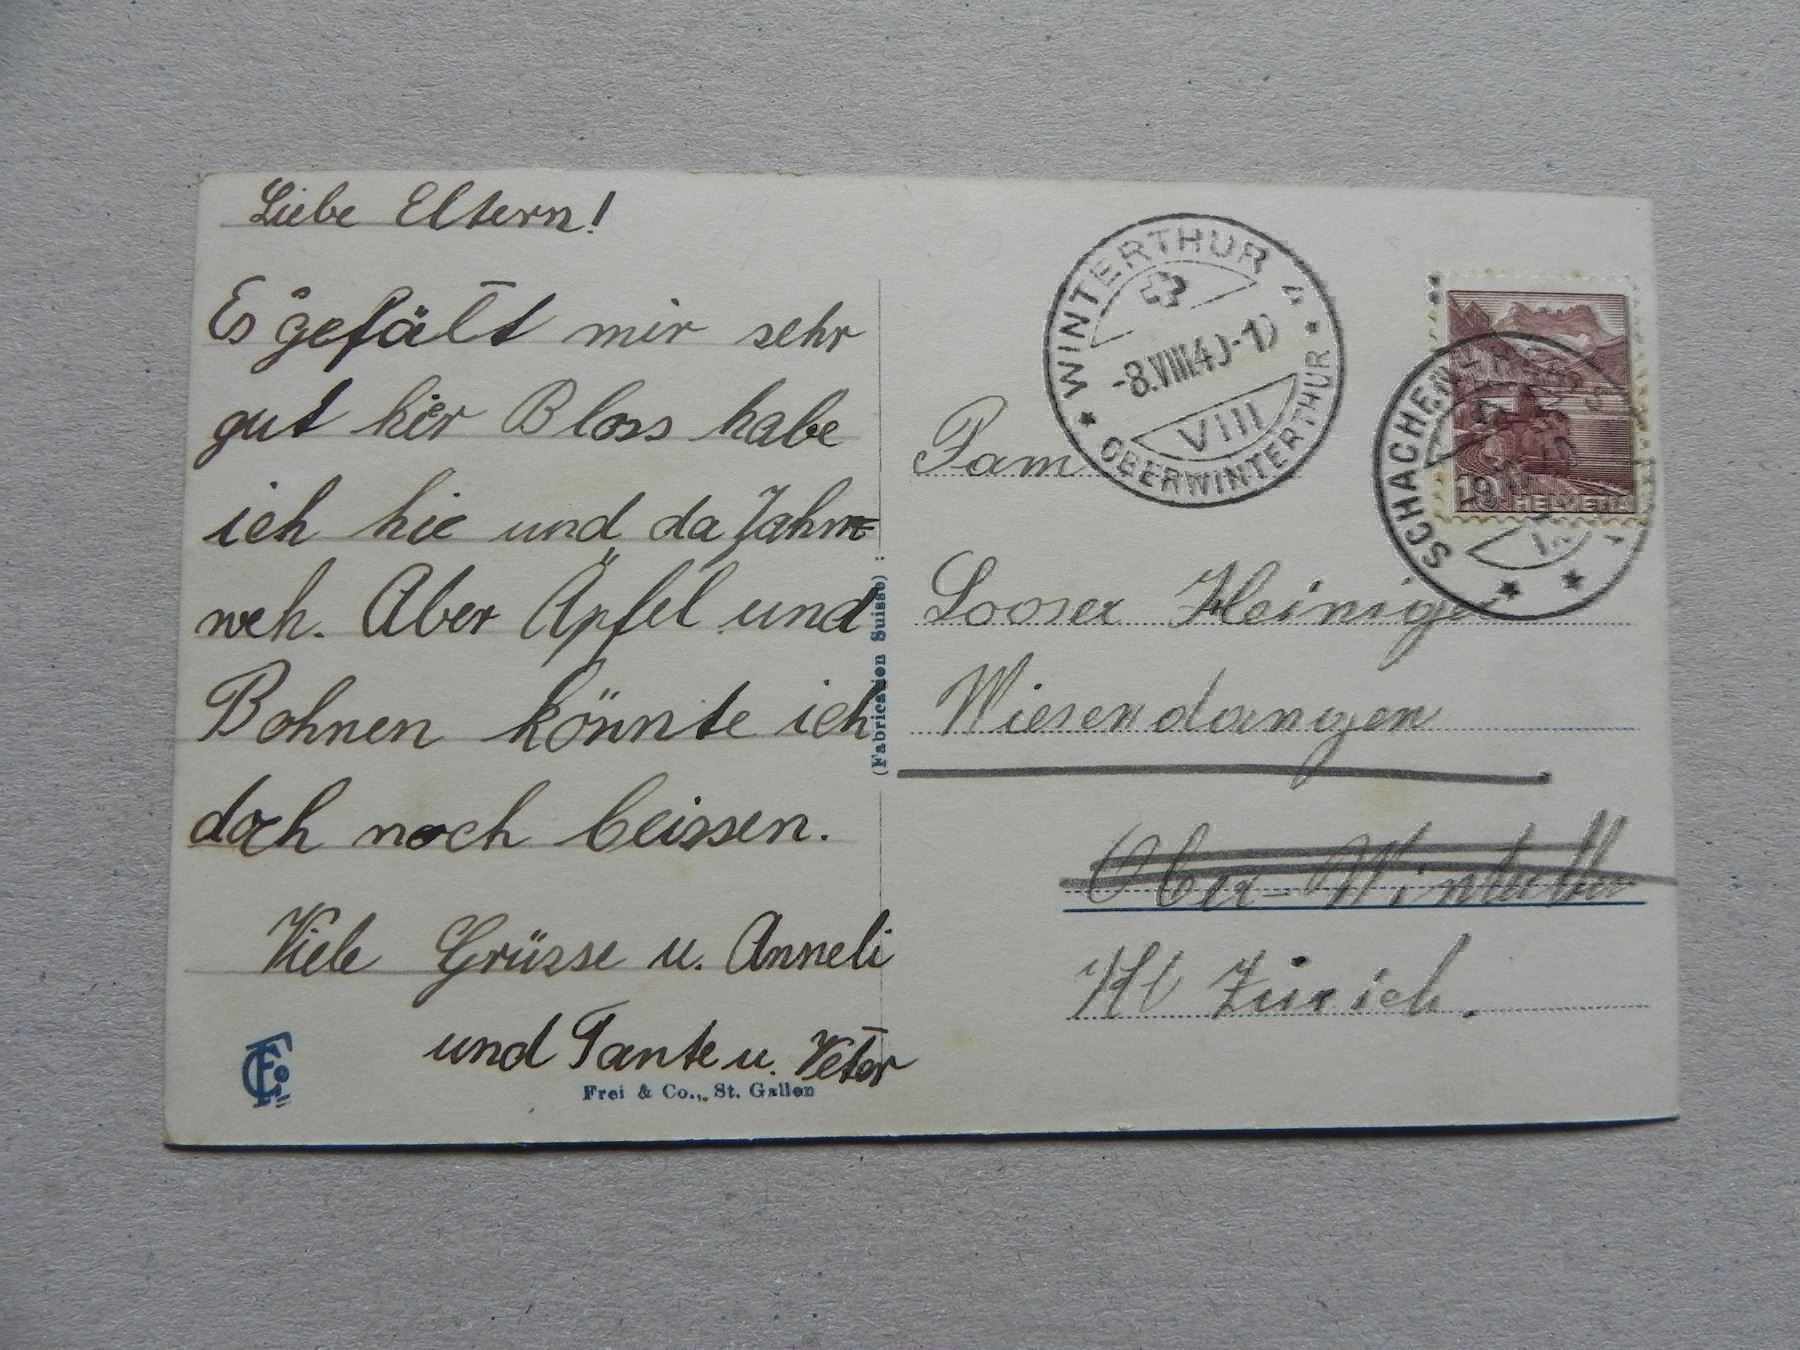 Liebe Eltern!
Es gefält mir sehr
gut hier Bloss habe
ich hie und da Jahm-
weh. Aber Äpfel und
Bohnen könnte ich
doch noch beissen.
Viele Grüsse u. Anneli
und Tante u. Vetter
Frei & Co., St. Gallen
(Fabrication Suisse) :
WINTERTHUR 4
-8.VIII.40-1
VIII
OBERWINTERTHUR
SCHACHEN
10 HELVETIA
Fam
Looser Heiniger
Wiesendangen
Ober-Winterthur
Kt Zürich.